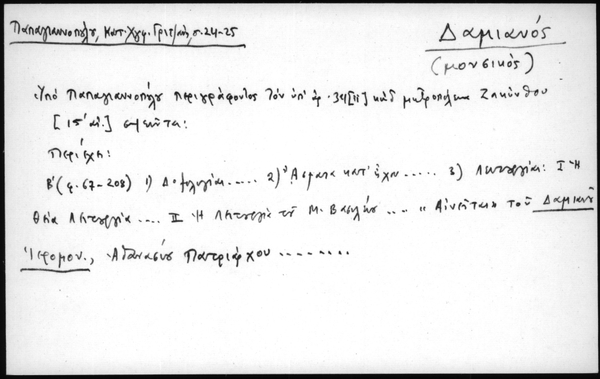 Παπαγιαννοπούλου, Κατ. Χγφ. σ. 24-25
Δαμιανός
(μουσικός)
Ὑπό Παπαγιαννοπούλου περιγράφοντος τόν ὑπ' ἀρ. 34[11] κώδ μητροπόλεως Ζακύνθου
[15' αἰ.] σημειοῦται:
Περιέχει:
Β' (φ. 67-208) 1) Δοξολογίαι..... 2) Ἄσματα κατ' ἦχον..... 3) Λειτουργίαι: I Ἡ
Θεία Λειτουργία .... II Ἡ Λειτουργία τοῦ Μ. Βασιλείου .... «Αἰνεῖτε» τοῦ Δαμιανοῦ
Ἱερομον., Ἀθανασίου Πατριάρχου ........